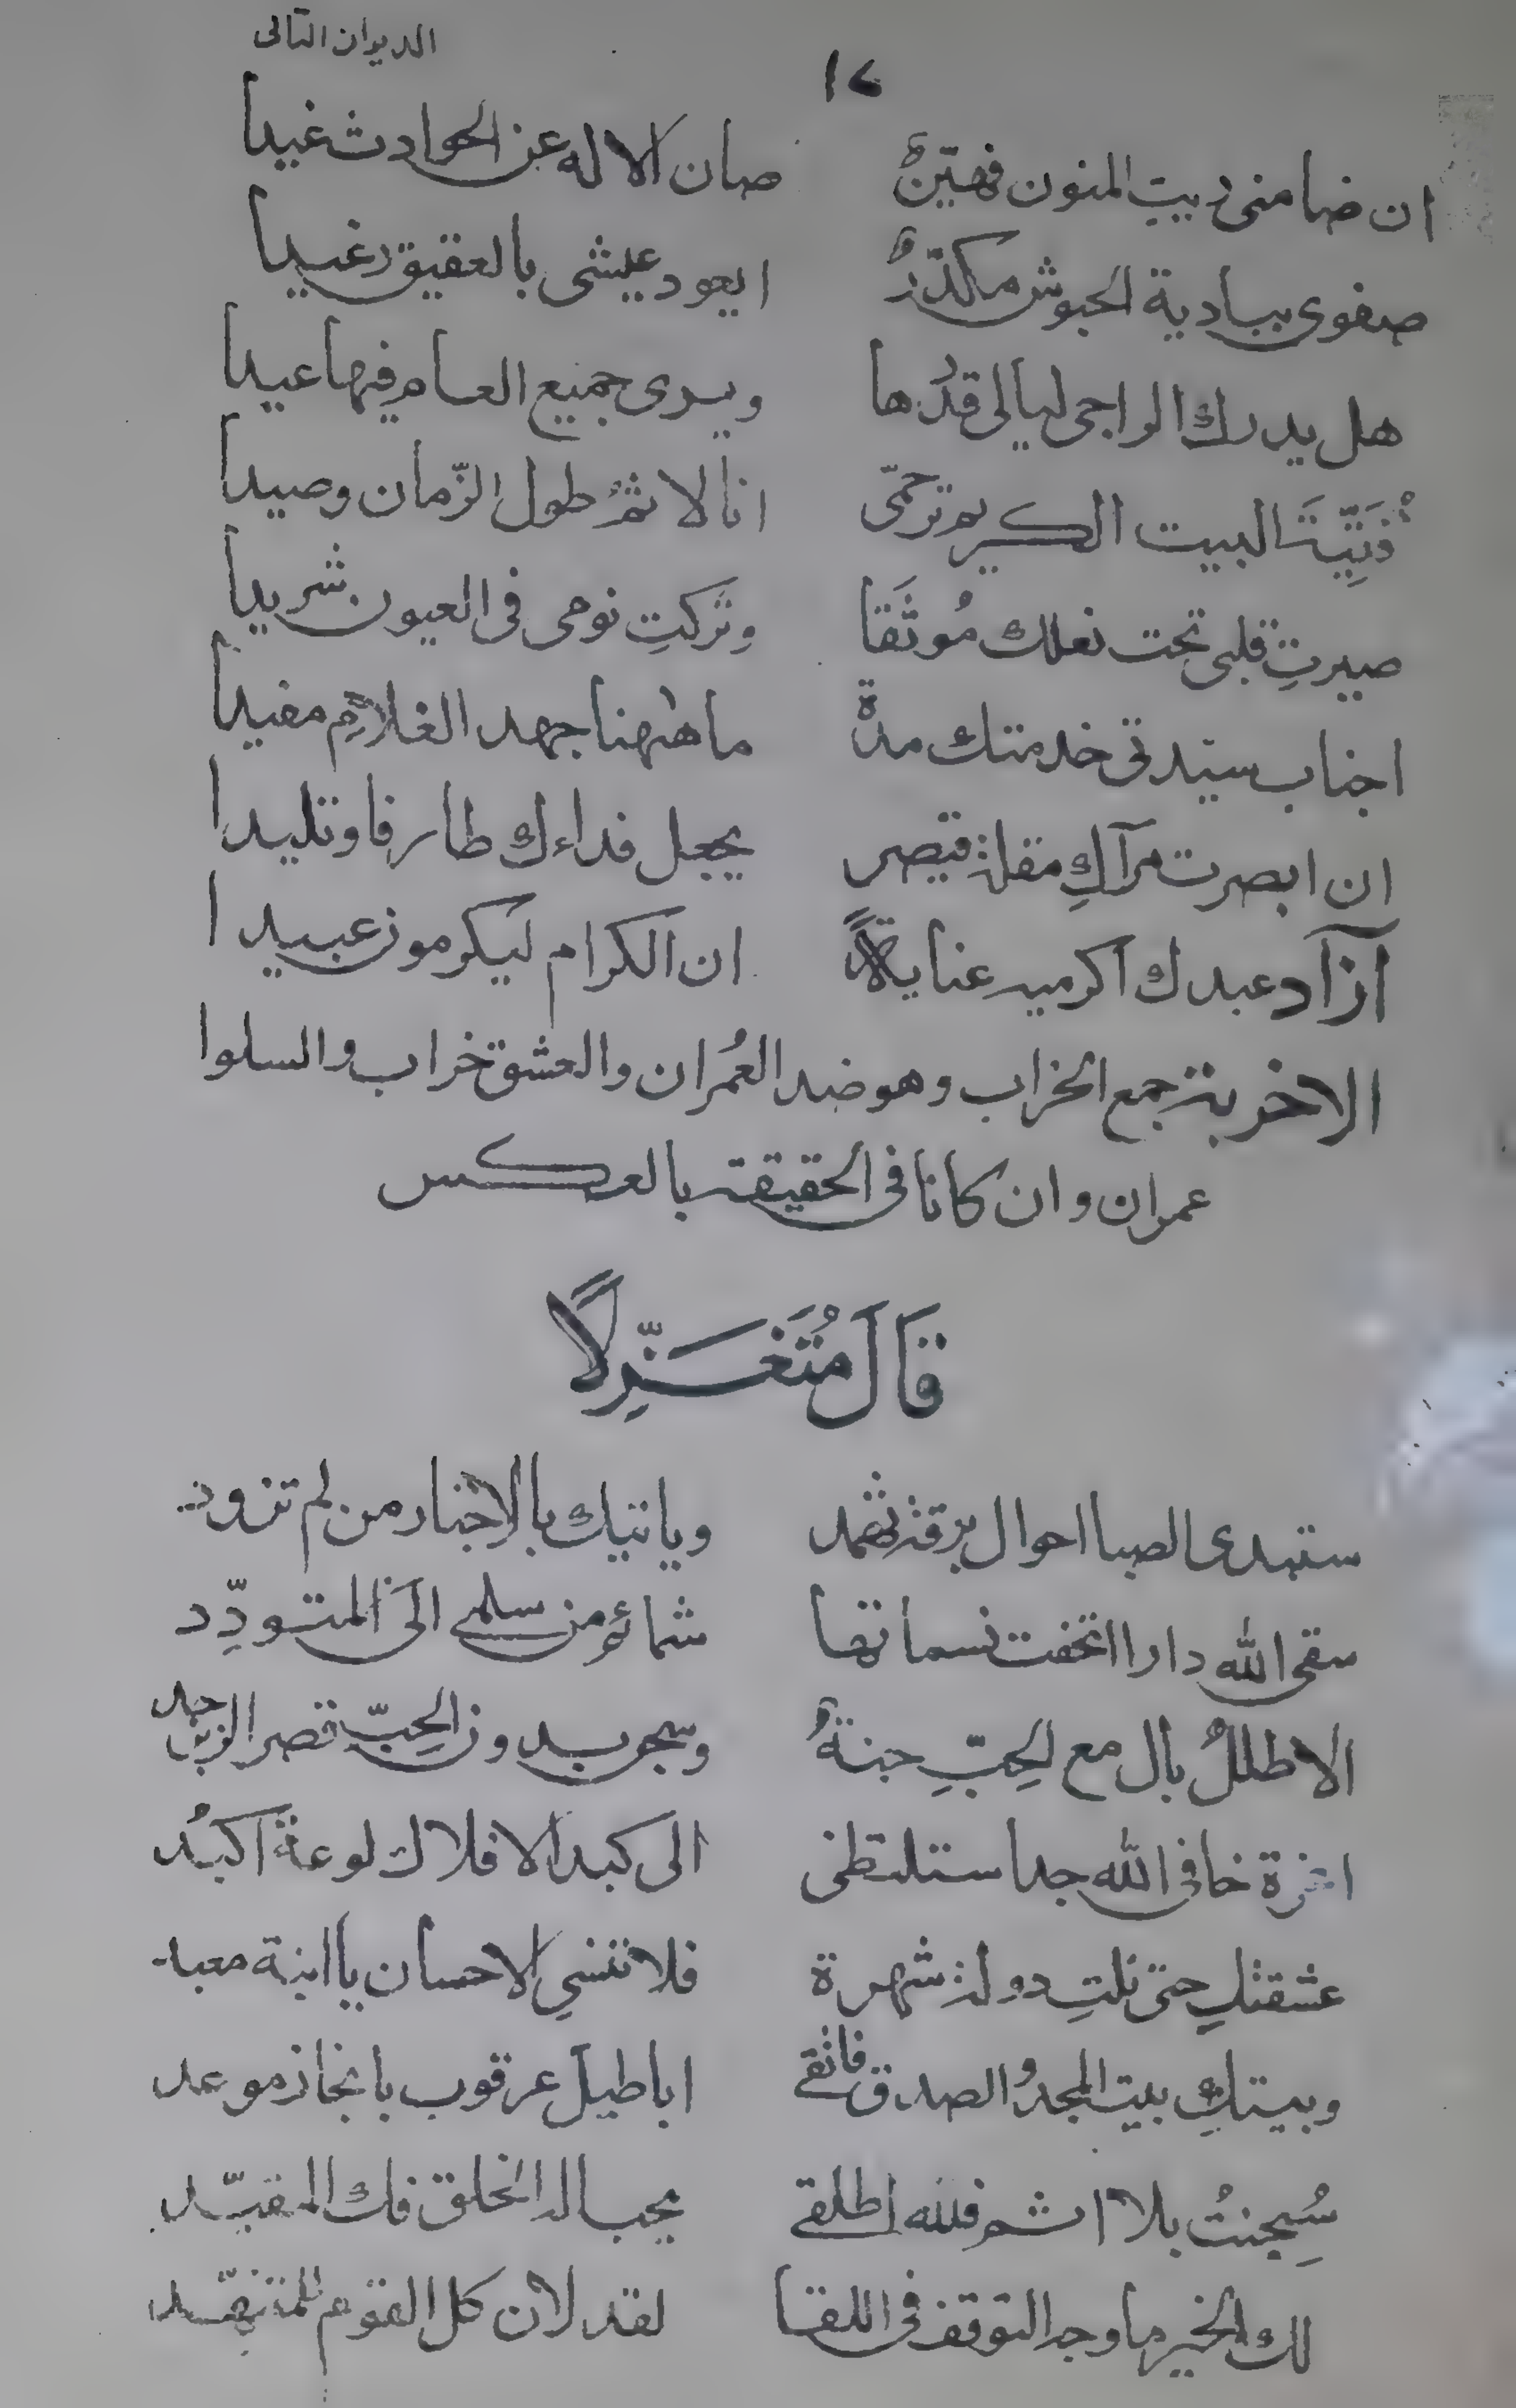 الديوان الثالى
١٢
ان ضامنى ريب المنون فهيّن صان الاله عن الحوادث غيدا
صفوى ببادية الحبوش مكدّرٌ ايعود عيشى بالعقيق رغيدا
هل يدرك الراجى ليالى قدرها ويرى جميع العام فيها عيدا
البيت الكريم ترحّمى انا لاثم طول الزّمان وصيدا
صيرتِ قلبى تحت نعلك مُوثَقا وتركتِ نومى فى العيون شريدا
اجناب سيّدتى خدمتك مدة ما ههنا جهد الغلام مفيدا
ان ابصرت مرآكِ مقلة قيصر يجعل فداءك طارفا وتليدا
آزاد عبدك اكرميه عناية ان الكرام ليكرمون عبيدا
الاخربة جمع الخراب وهو ضد العُمران والعشق خراب والسلوا
عمران وان كانا فى الحقيقة بالعكس
قَالَ مُتَغَزِّلًا
ستبدى الصبا احوال برقة ثهمد وياتيك بالاخبار من لم تزود
سقى الله دارا اتحفت نسماتها شمائم من سلمى الى المتودِّد
الا طللٌ بال مع الحِبِّ جنةٌ وسجن بدون الحِبّ قصر الزبرجد
خافى الله جدا ستلتظى الى كبد الافلاك لوعة اكبُد
عشقتكِ حتى نلتِ دولة شهرة فلا تنسى الاحسان يا ابنة معبد
وبيتكِ بيت المجد والصدق فاتقى اباطيل عرقوب بانجاز موعد
سُجِنتُ بلا اثم فلله اطلقى يحب اله الخلق فك المقيّد
لك الخير ما وجه التوقف فى اللقا لقد لان كل القوم للمتنهّد